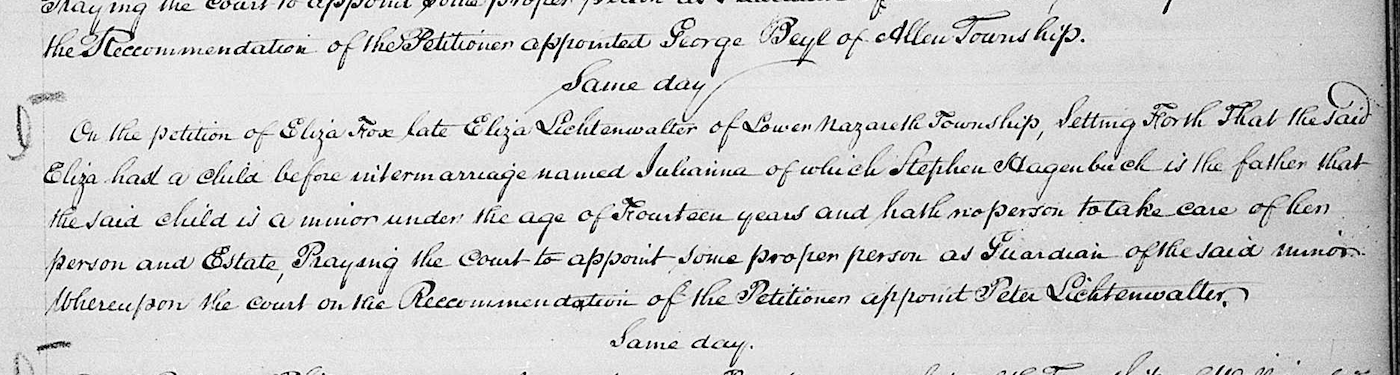 Praying the Court to appoint some proper person as Guardian of
the Reccommendation of the Petitioner appointed George Beyl of Allen Township.
Same day
On the petition of Eliza Fox late Eliza Lichtenwalter of Lower Nazareth Township, Setting Forth That the said
Eliza had a child before intermarriage named Julianna of which Stephen Hagenbuch is the father that
the said child is a minor under the age of Fourteen years and hath no person to take care of her
person and Estate, Praying the Court to appoint some proper person as Guardian of the said minor.
Whereupon the court on the Reccommendation of the Petitioner appoint Peter Lichtenwalter.
Same day.